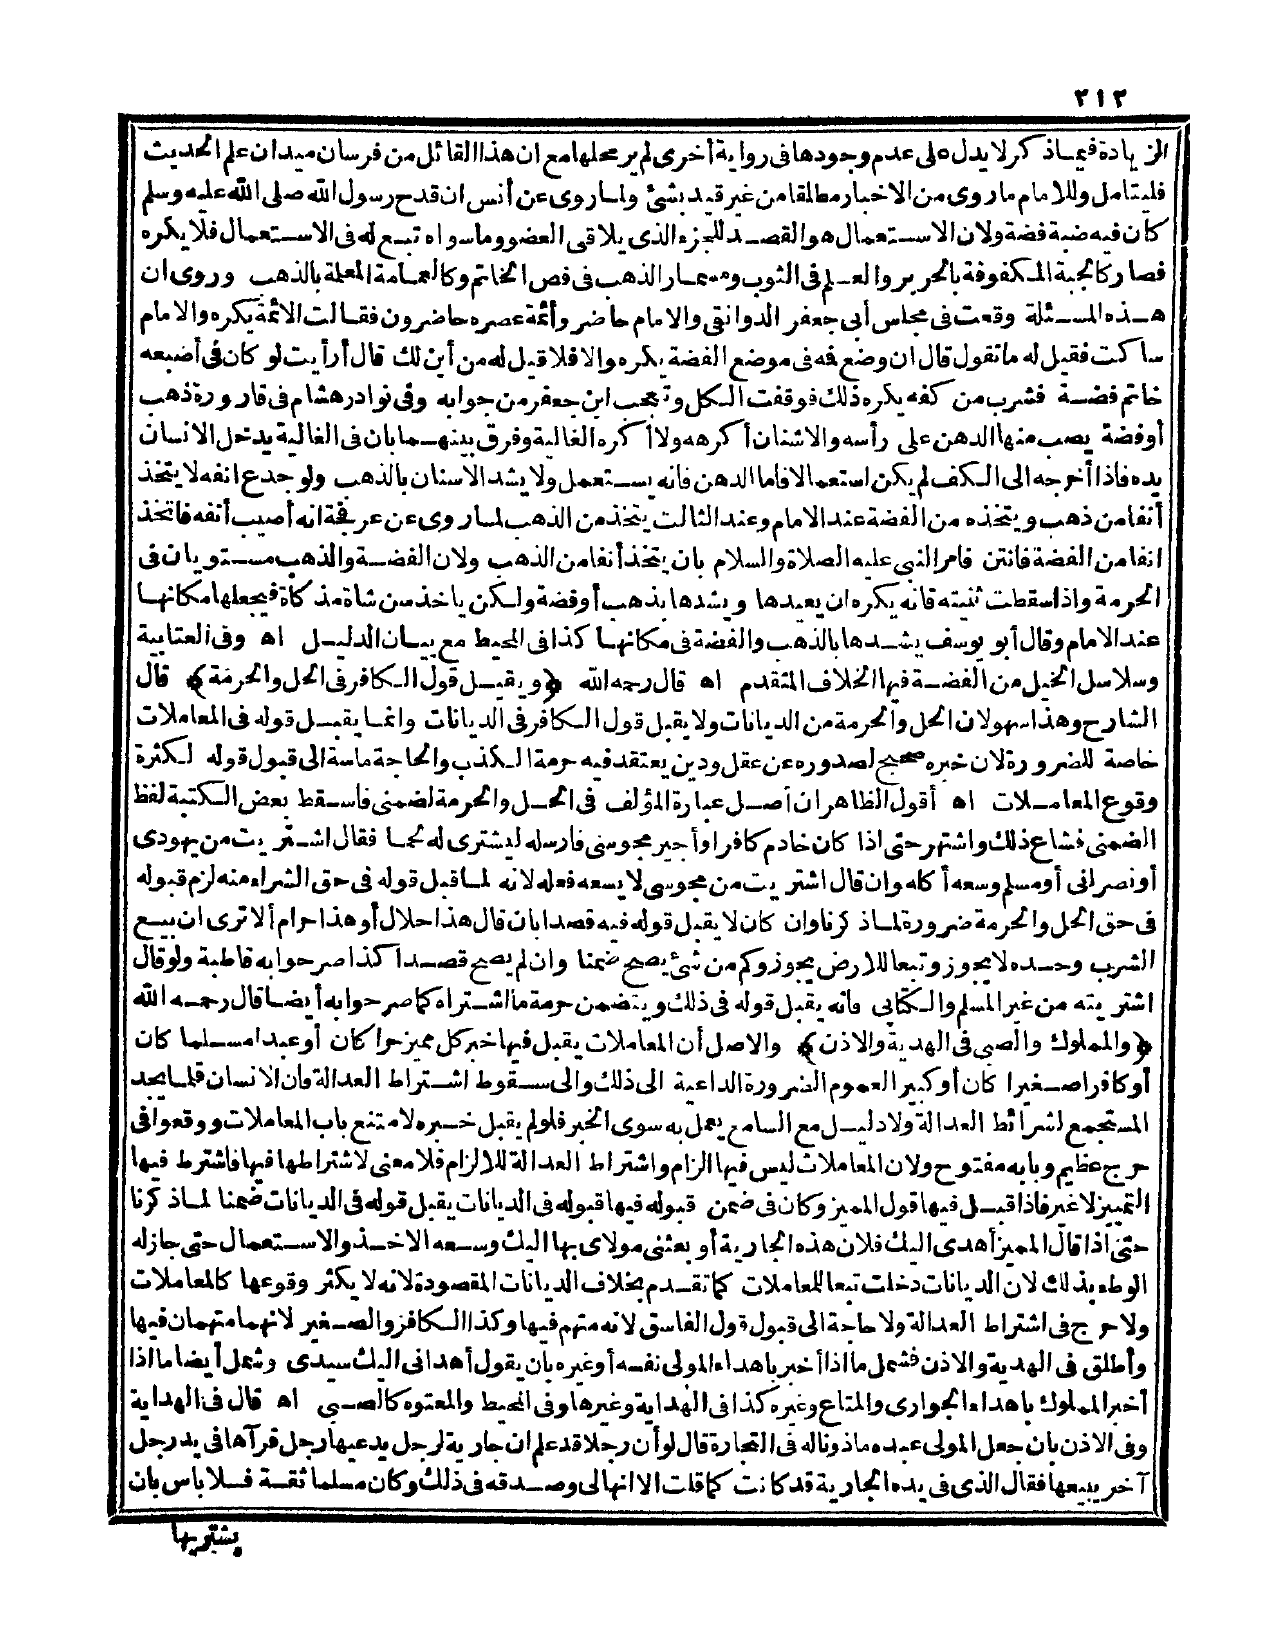 ٢١٢
الزيادة فيما ذكر لا يدل على عدم وجودها فى رواية أخرى لم ير محلها مع ان هذا القائل من فرسان ميدان علم الحديث
فليتامل وللامام ما روى من الاخبار مطلقا من غير قيد بشئ ولما روى عن أنس ان قدح رسول الله صلى الله عليه وسلم
كان فيه ضبة فضة ولان الاستعمال هو القصد للجزء الذى يلاقى العضو وما سواه تبع له فى الاستعمال فلا يكره
فصار كالجبة المكفوفة بالحرير والعلم فى الثوب ومسمار الذهب فى فص الخاتم وكالعمامة المعلمة بالذهب وروى ان
هذه المسئلة وقعت فى مجلس أبى جعفر الدوانقى والامام حاضر وأئمة عصره حاضرون فقالت الائمة يكره والامام
ساكت فقيل له ما تقول قال ان وضع فمه فى موضع الفضة يكره والا فلا قيل له من أين لك قال أرأيت لو كان فى أضبعه
خاتم فضة فشرب من كفه يكره ذلك فوقفت الكل وتعجب ابن جعفر من جوابه وفى نوادر هشام فى قارورة ذهب
أو فضة يصب منها الدهن على رأسه والاشنان أكرهه ولا أكره الغالية وفرق بينهما بان فى الغالية يدخل الانسان
يده فاذا أخرجه الى الكف لم يكن استعمالا فاما الدهن فانه يستعمل ولا يشد الاسنان بالذهب ولو جدع انفه لا يتخذ
أنفا من ذهب ويتخذه من الفضة عند الامام وعند الثالث يتخذ من الذهب لما روى عن عرفجة انه أصيب أنفه فاتخذ
انفا من الفضة فانتن فامر النبى عليه الصلاة والسلام بان يتخذ أنفا من الذهب ولان الفضة والذهب مستويان فى
الحرمة واذا سقطت ثنيته فانه يكره ان يعيدها ويشدها بذهب أو فضة ولكن ياخذ سن شاة مذكاة فيجعلها مكانها
عند الامام وقال أبو يوسف يشدها بالذهب والفضة فى مكانها كذا فى المحيط مع بيان الدليل اه وفى العتابية
وسلاسل الخيل من الفضة فيها الخلاف المتقدم اه قال رحمه الله ﴿ويقبل قول الكافر فى الحل والحرمة﴾ قال
الشارح وهذا سهو لان الحل والحرمة من الديانات ولا يقبل قول الكافر فى الديانات وانما يقبل قوله فى المعاملات
خاصة للضرورة لان خبره صحيح لصدوره عن عقل ودين يعتقد فيه حرمة الكذب والحاجة ماسة الى قبول قوله لكثرة
وقوع المعاملات اه أقول الظاهر ان أصل عبارة المؤلف فى الحل والحرمة لضمنى فاسقط بعض الكتبة لفظ
الضمنى فشاع ذلك واشتهر حتى اذا كان خادم كافر أو أجير مجوسى فارسله ليشترى له لحما فقال اشتريت من يهودى
أو نصرانى أو مسلم وسعه أكله وان قال اشتريت من مجوسى لا يسعه فعله لانه لما قبل قوله فى حق الشراء منه لزم قبوله
فى حق الحل والحرمة ضرورة لما ذكرنا وان كان لا يقبل قوله فيه قصدا بان قال هذا حلال أو هذا حرام ألا ترى ان بيع
الشرب وحده لا يجوز وتبعا للارض يجوز وكم من شئ يصح ضمنا وان لم يصح قصدا كذا صرحوا به قاطبة ولو قال
اشتريته من غير المسلم والكتابى فانه يقبل قوله فى ذلك ويتضمن حرمة ما اشتراه كما صرحوا به أيضا قال رحمه الله
﴿والمملوك والصبى فى الهدية والاذن﴾ والاصل أن المعاملات يقبل فيها خبر كل مميز حرا كان أو عبدا مسلما كان
أو كافرا صغيرا كان أو كبيرا لعموم الضرورة الداعية الى ذلك والى سقوط اشتراط العدالة فان الانسان قلما يجد
المستجمع لشرائط العدالة ولا دليل مع السامع يعمل به سوى الخبر فلو لم يقبل خبره لامتنع باب المعاملات ووقعوا فى
حرج عظيم وبابه مفتوح ولان المعاملات ليس فيها الزام واشتراط العدالة للالزام فلا معنى لاشتراطها فيها فاشترط فيها
التمييز لا غير فاذا قبل فيها قول المميز وكان فى ضمن قبوله فيها قبوله فى الديانات يقبل قوله فى الديانات ضمنا لما ذكرنا
حتى اذا قال المميز أهدى اليك فلان هذه الجارية أو بعثنى مولاى بها اليك وسعه الاخذ والاستعمال حتى جاز له
الوطء بذلك لان الديانات دخلت تبعا للمعاملات كما تقدم بخلاف الديانات المقصودة لانه لا يكثر وقوعها كالمعاملات
ولا حرج فى اشتراط العدالة ولا حاجة الى قبول قول الفاسق لانه متهم فيها وكذا الكافر والصغير لانهما متهمان فيها
وأطلق فى الهدية والاذن فشمل ما اذا أخبر باهداء المولى نفسه أو غيره بان يقول أهدانى اليك سيدى وشمل أيضا ما اذا
أخبر المملوك باهداء الجوارى والمتاع وغيره كذا فى الهداية وغيرها وفى المحيط والمعتوه كالصبى اه قال فى الهداية
وفى الاذن بان جعل المولى عبده ماذونا له فى التجارة قال لو أن رجلا قد علم ان جارية لرجل يدعيها رجل فرآها فى يد رجل
آخر يبيعها فقال الذى فى يده الجارية قد كانت كما قلت الا انها لى وصدقه فى ذلك وكان مسلما ثقة فلا باس بان
يشتريها